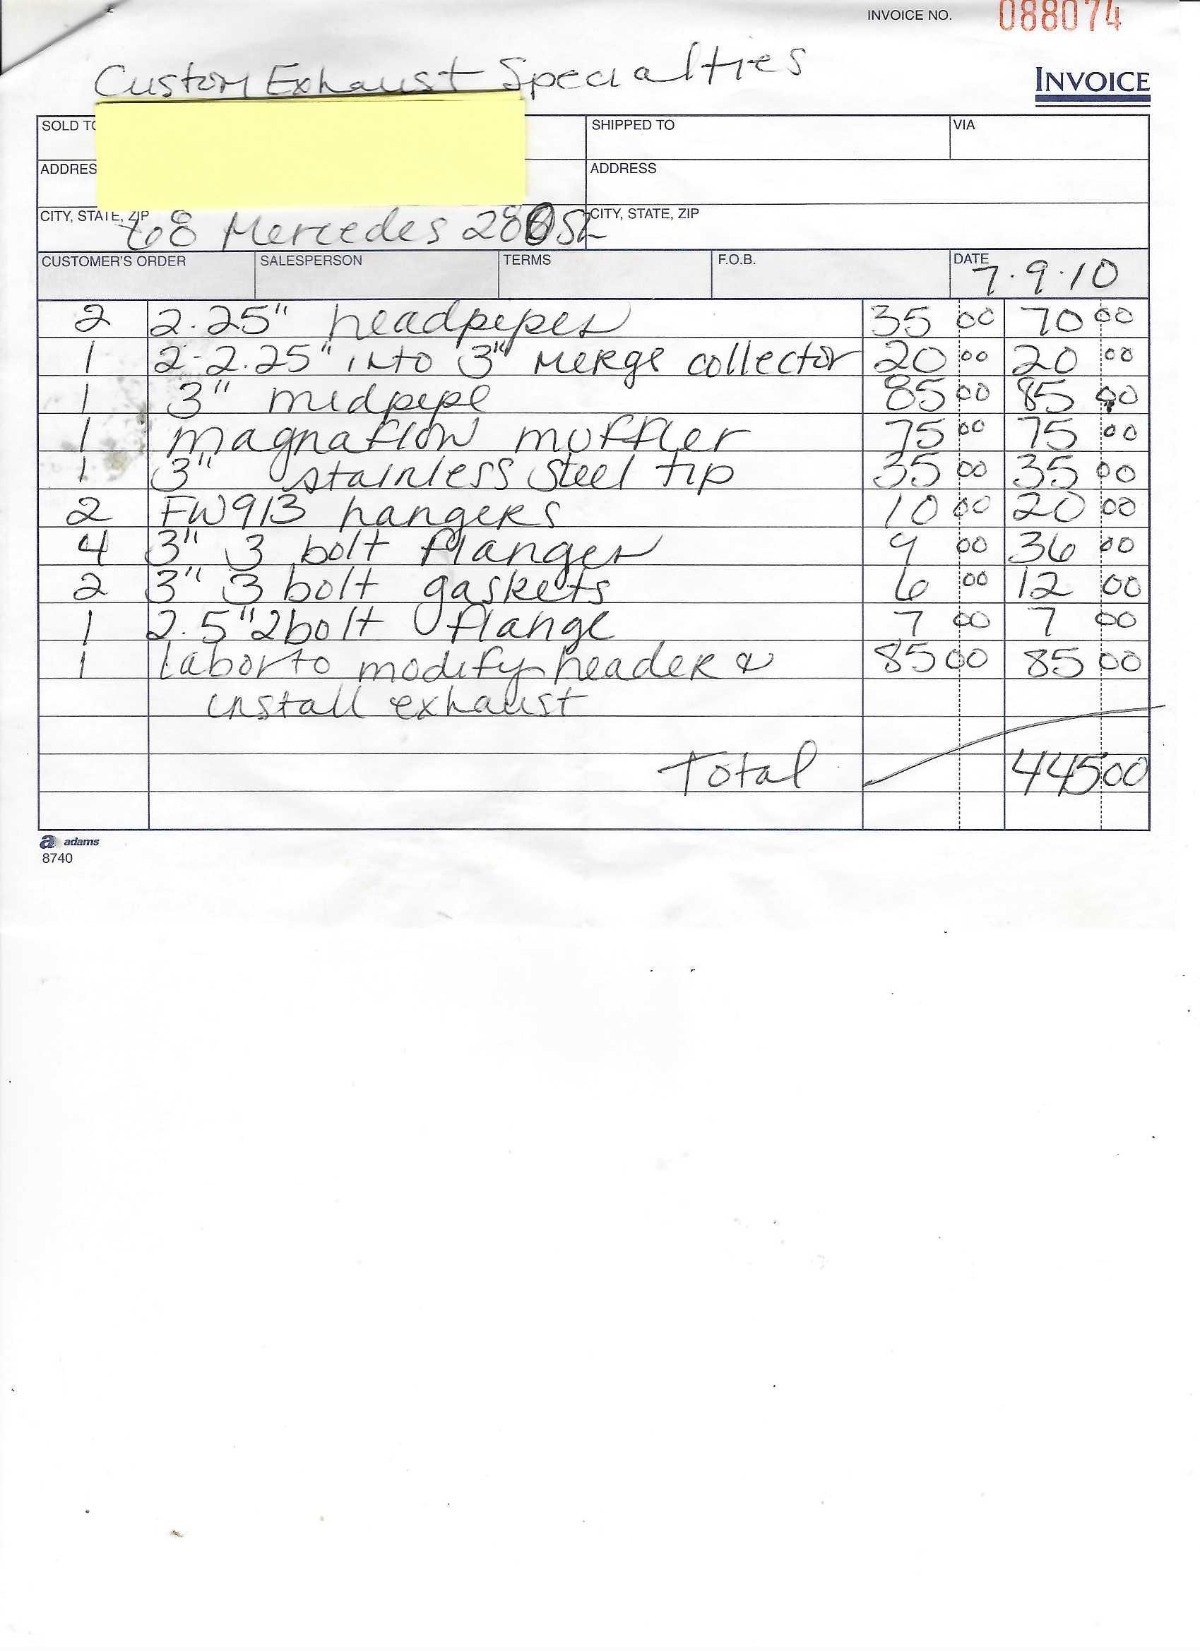 INVOICE NO. 088074
Custom Exhaust Specialties
INVOICE
SOLD TO SHIPPED TO VIA
ADDRES ADDRESS
CITY, STATE, ZIP CITY, STATE, ZIP
68 Mercedes 280SL
CUSTOMER'S ORDER SALESPERSON TERMS F.O.B. DATE 7.9.10
2 2.25" headpipes 35 00 70 00
1 2-2.25" into 3" merge collector 20 00 20 00
1 3" midpipe 85 00 85 00
1 magnaflow muffler 75 00 75 00
1 3" stainless steel tip 35 00 35 00
2 FW913 hangers 10 00 20 00
4 3" 3 bolt flanges 9 00 36 00
2 3" 3 bolt gaskets 6 00 12 00
1 2.5" 2 bolt flange 7 00 7 00
1 labor to modify header & 85 00 85 00
install exhaust
Total 445 00
a adams
8740